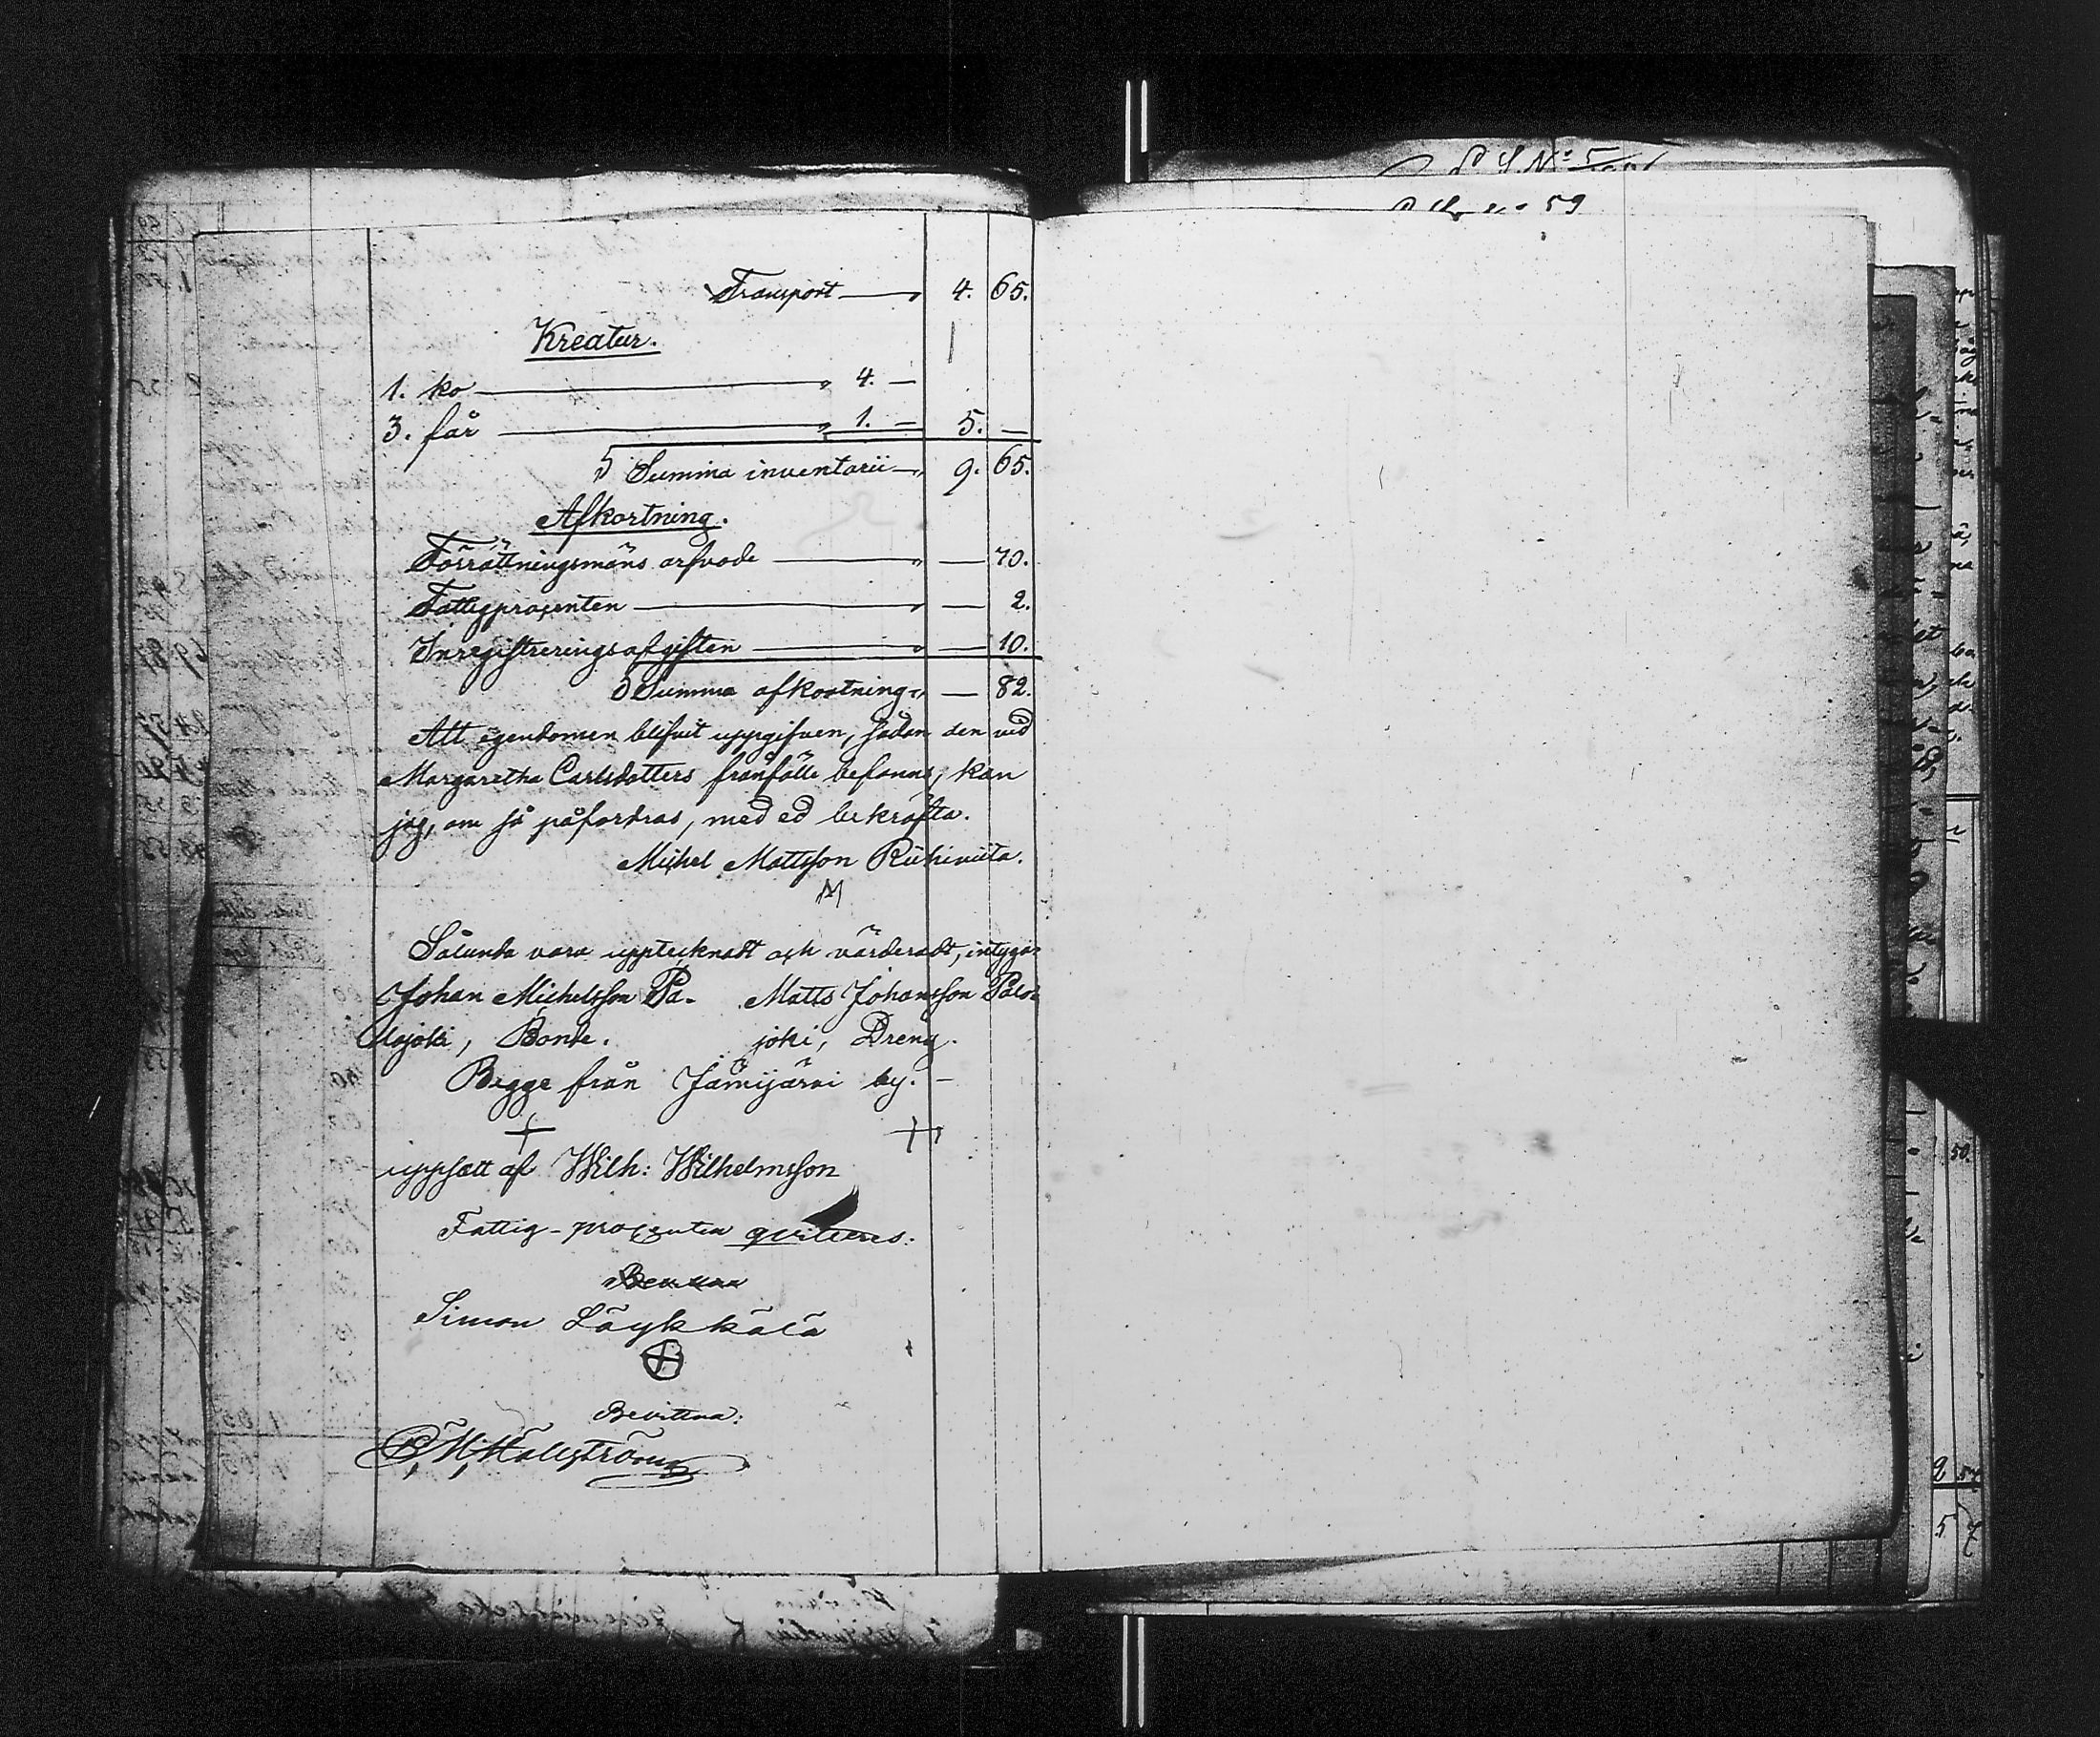 Transport — " 4. 65.
Kreatur.
1. ko — " 4. —
3. får — " 1. — 5. —
Summa inventarii — " 9. 65.
Afkortning.
Förrättningsmäns arfvode — " — 70.
Fattigprocenten — " — 2.
Inregistreringsafgiften — " — 10.
Summa afkortning " — 82.
Att egendomen blifvit uppgifven, sådan den vid
Margaretha Carlsdotters frånfälle befanns, kan
jag, om så påfordras, med ed bekräfta.
Michel Mattsson Riihiniita.
M
Sålunda vara upptecknadt och värderadt, intyga:
Johan Michelsson Pa- Matts Johansson Palo-
lojoki, Bonde. joki, Dreng.
Begge från Jämijärvi by. —
uppsatt af Wilh: Wilhelmsson
Fattig-procenten qvitteras:
Simon Löykkälä
Bevittna:
Hällström
59